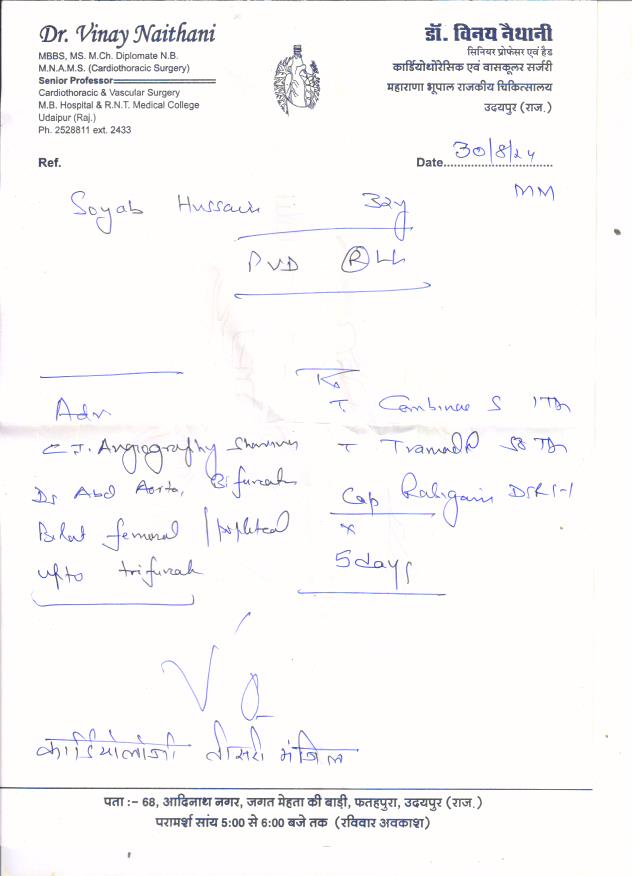 Dr. Vinay Naithani
MBBS, MS. M.Ch. Diplomate N.B.
M.N.A.M.S. (Cardiothoracic Surgery)
Senior Professor
Cardiothoracic & Vascular Surgery
M.B. Hospital & R.N.T. Medical College
Udaipur (Raj.)
Ph. 2528811 ext. 2433
डॉ. विनय नैथानी
सिनियर प्रोफेसर एवं हैड
कार्डियोथोरेसिक एवं वासकूलर सर्जरी
महाराणा भूपाल राजकीय चिकित्सालय
उदयपुर (राज.)
Ref.
Date 30/8/24
MM
Soyab Hussain 32y
PVD Ⓡ LL
Adv
C.T. Angiography
Ds Abd Aorta,
Bilat femoral / popliteal
upto
Rx
T. Combinae S 1
T Tramadl
Cap DSR 1-1
x
5 days
कार्डियोलोजी तीसरी मंजिल
पता :- 68, आदिनाथ नगर, जगत मेहता की बाड़ी, फतहपुरा, उदयपुर (राज.)
परामर्श सांय 5:00 से 6:00 बजे तक (रविवार अवकाश)